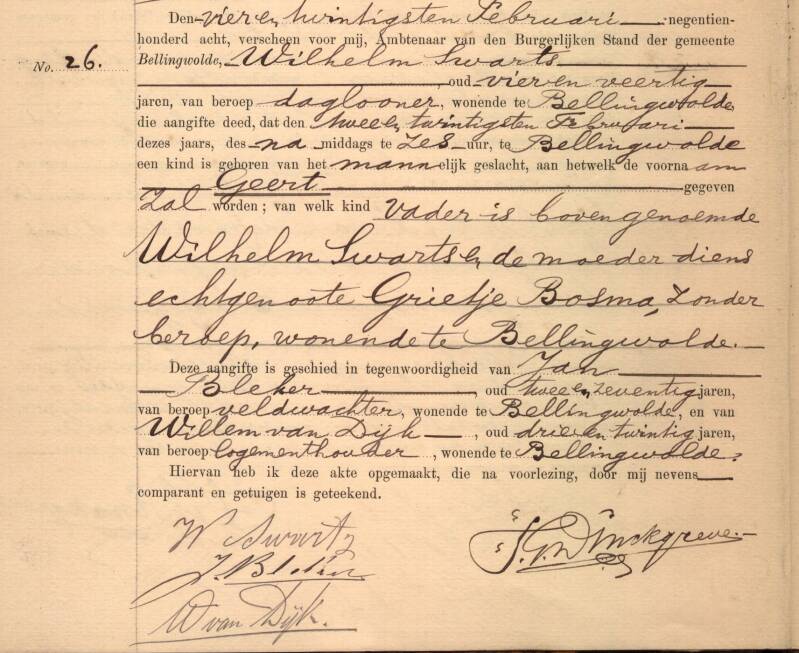 Den vier en twintigsten Februari negentien-
honderd acht, verscheen voor mij, Ambtenaar van den Burgerlijken Stand der gemeente
No. 26. Bellingwolde, Wilhelm Swarts
, oud vier en veertig
jaren, van beroep daglooner, wonende te Bellingwolde
die aangifte deed, dat den twee en twintigsten Februari
dezes jaars, des na middags te zes uur, te Bellingwolde
een kind is geboren van het mannelijk geslacht, aan hetwelk de voornaam
Geert gegeven
zal worden; van welk kind vader is bovengenoemde
Wilhelm Swarts en de moeder diens
echtgenoote Grietje Bosma, zonder
beroep, wonende te Bellingwolde.
Deze aangifte is geschied in tegenwoordigheid van Jan
Bleker, oud twee en zeventig jaren,
van beroep veldwachter, wonende te Bellingwolde, en van
Willem van Dijk, oud drie en twintig jaren,
van beroep logementhouder, wonende te Bellingwolde.
Hiervan heb ik deze akte opgemaakt, die na voorlezing, door mij nevens
comparant en getuigen is geteekend.
W Swarts
J. Bleker
W van Dijk.